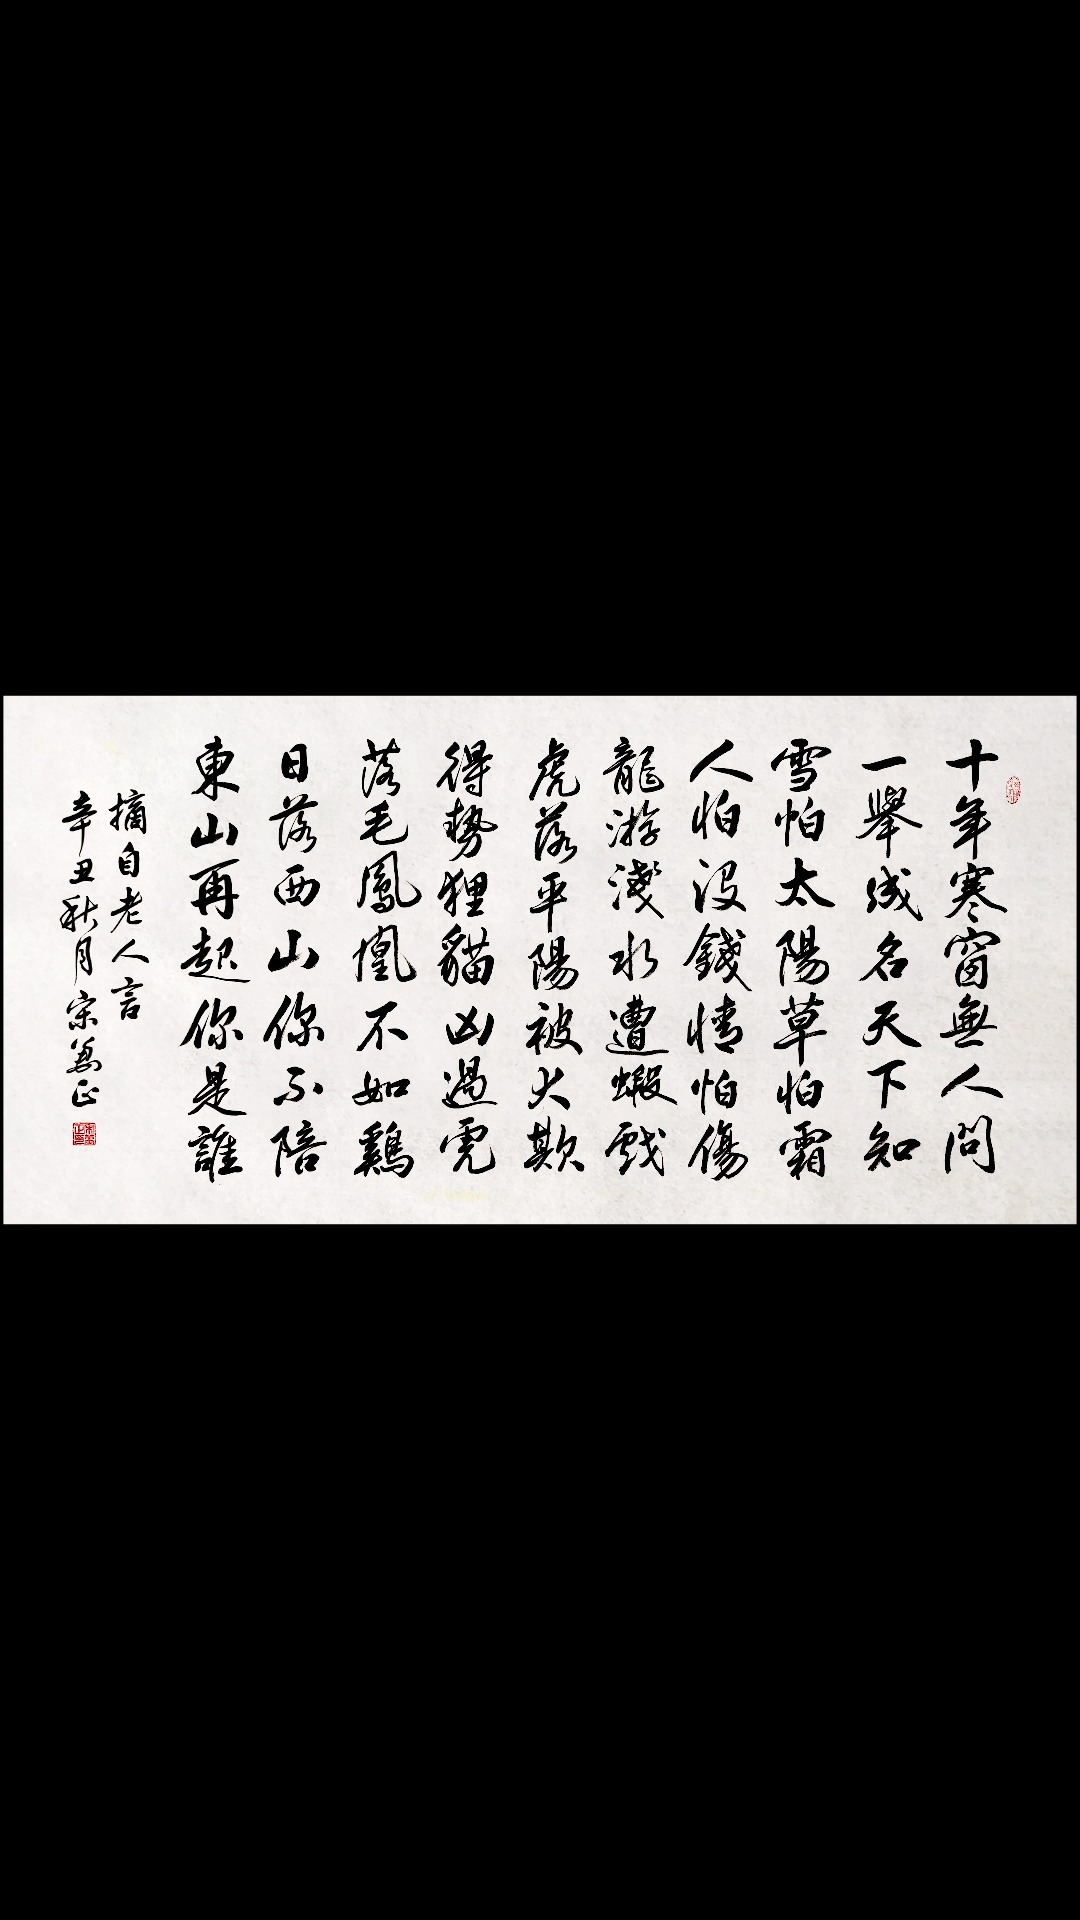 十年寒窗無人問
一舉成名天下知
雪怕太陽草怕霜
人怕沒錢情怕傷
龍游淺水遭蝦戲
虎落平陽被犬欺
得勢狸貓凶過虎
落毛鳳凰不如鷄
日落西山你不陪
東山再起你是誰
摘自老人言
辛丑秋月宋為正